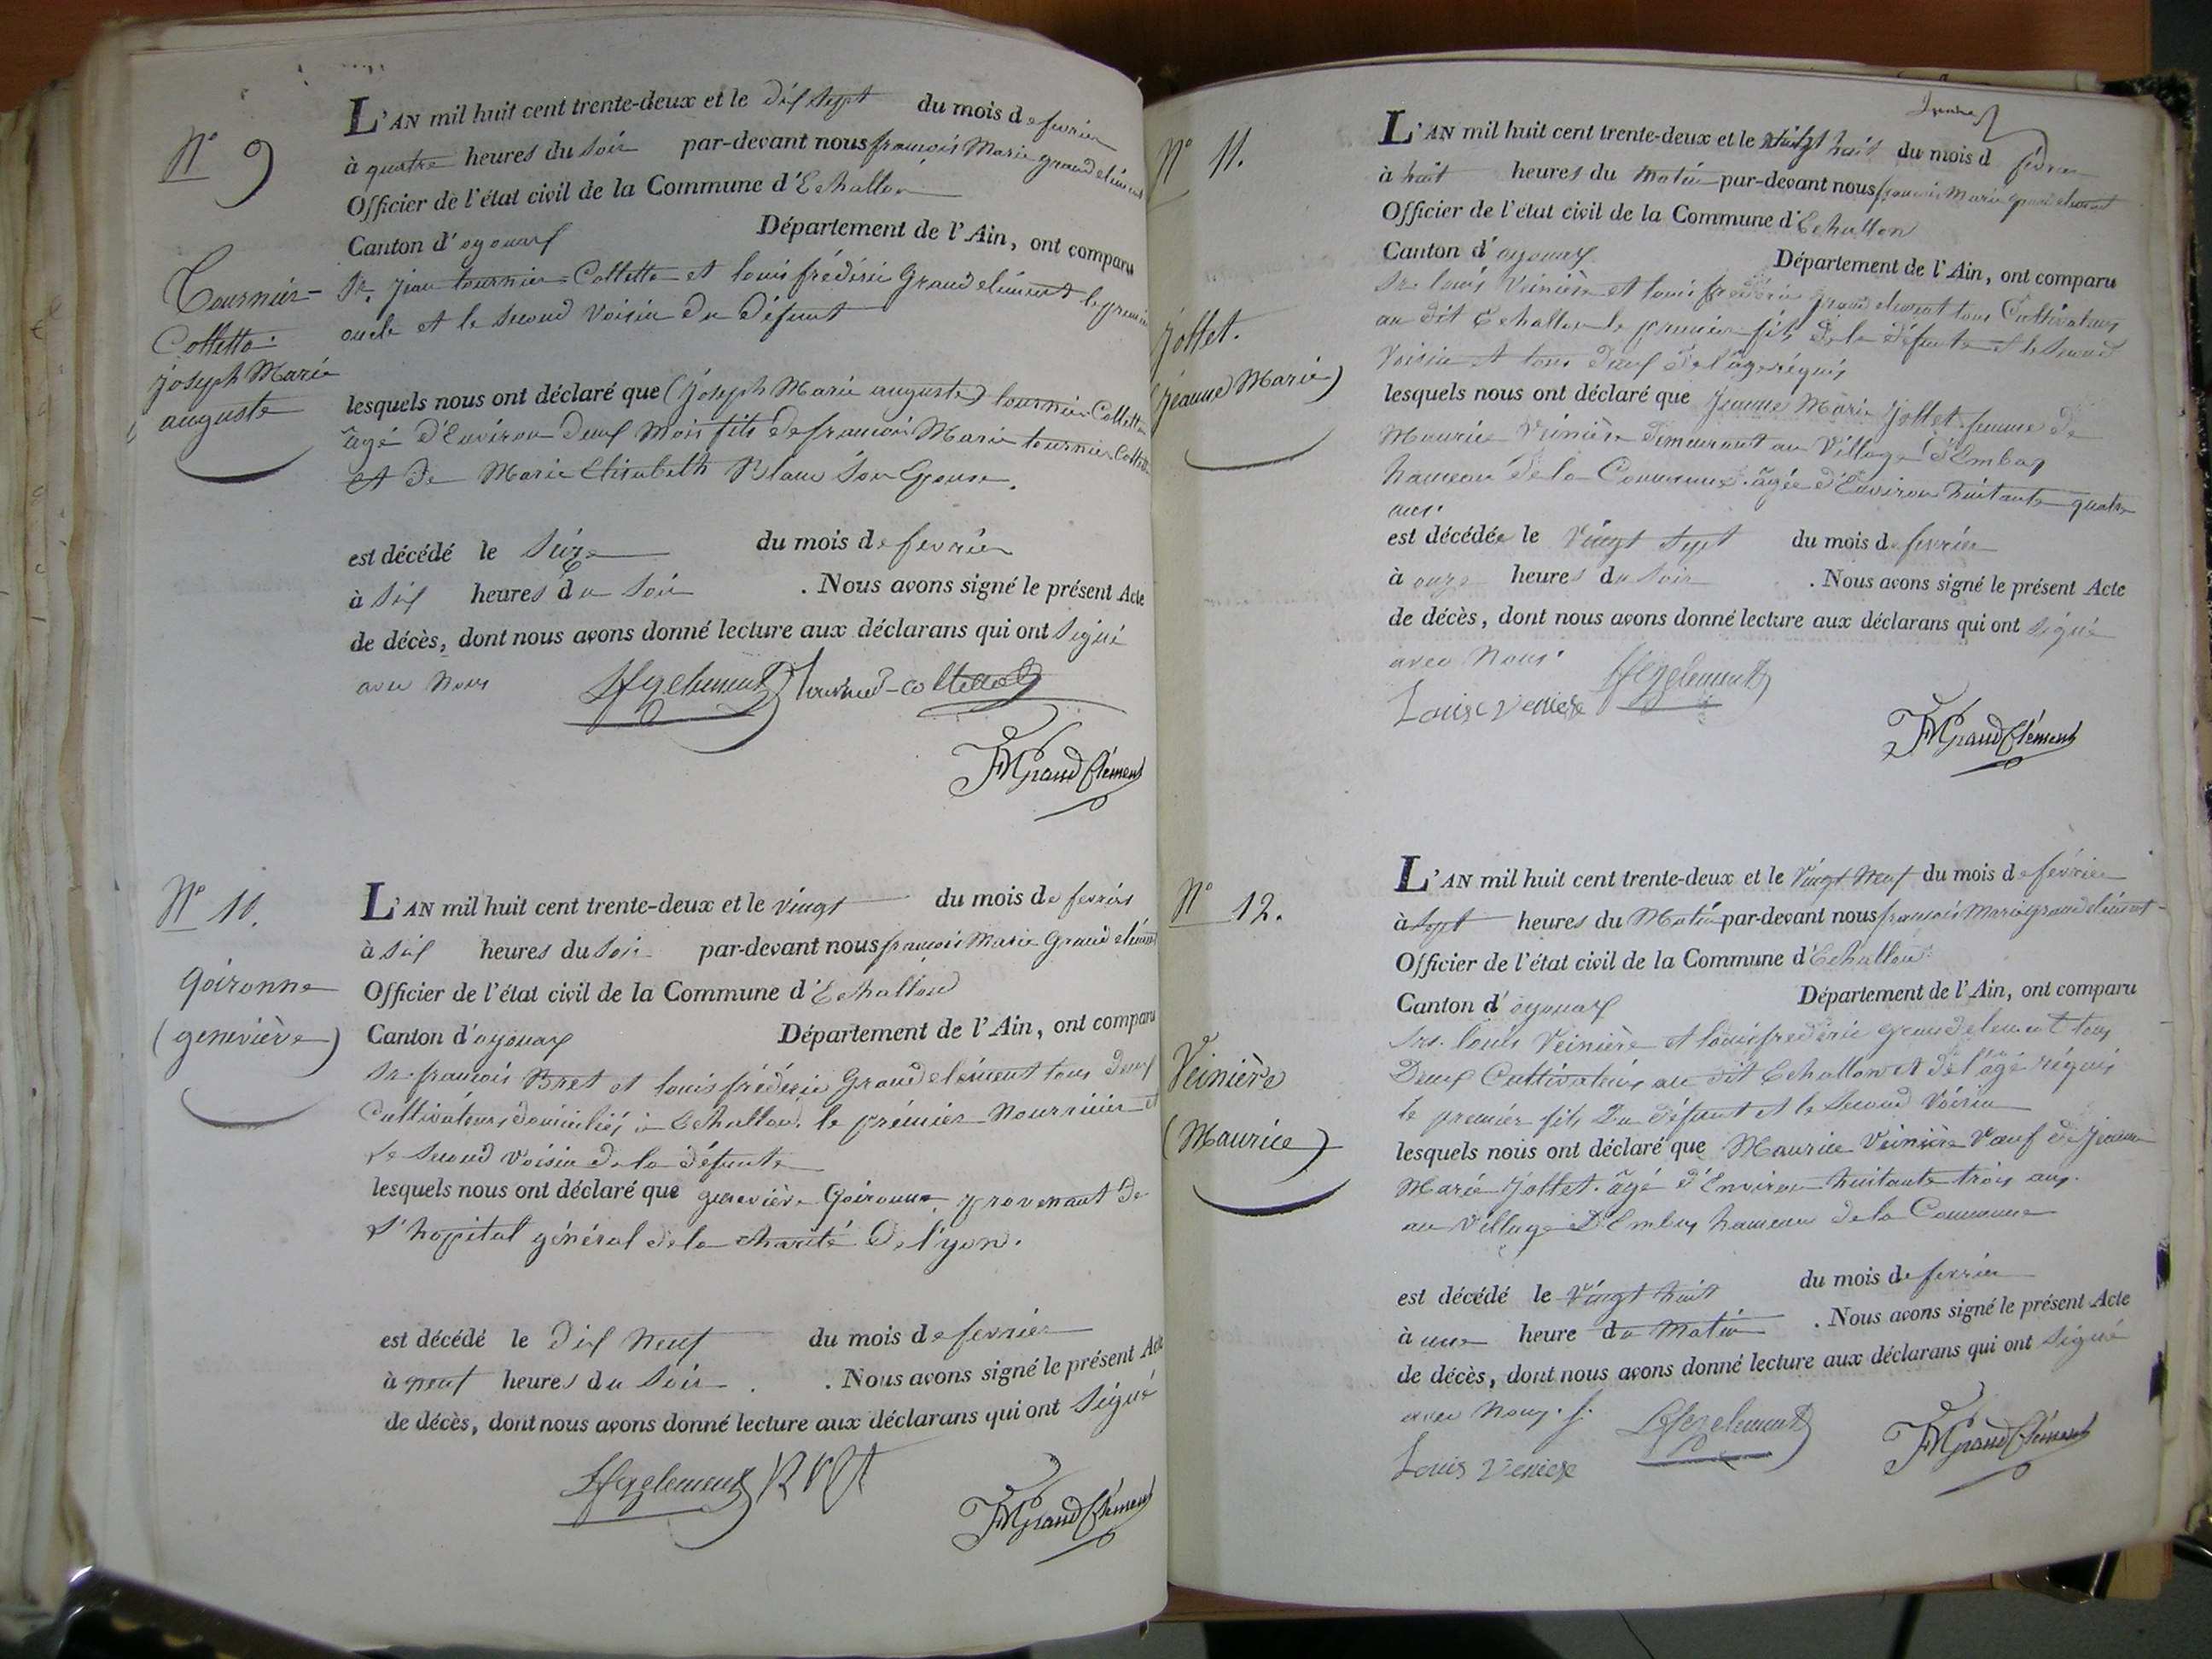 N° 9
Tournier-
Colletta
joseph Marie
auguste
L'AN mil huit cent trente-deux et le dix sept du mois de fevrier
à quatre heures du soir par-devant nous françois Marie grandclément
Officier de l'état civil de la Commune d'Echallon
Canton d'oyonax Département de l'Ain, ont comparu
Sr. jean tournier Colletta et louis frédéric Grandclément le premier
oncle et le second Voisin du défunt
lesquels nous ont déclaré que (joseph Marie auguste) tournier Colletta
âgé d'Environ deux Mois fils de françois Marie tournier Colletta
et de Marie Elisabeth Blanc Son Epouse.
est décédé le Seize du mois de fevrier
à Six heures du Soir . Nous avons signé le présent Acte
de décès, dont nous avons donné lecture aux déclarans qui ont Signé
avec Nous
LfgClement Tournier-colletta
FMGrandClément
N° 10.
goironne
(geneviève)
L'AN mil huit cent trente-deux et le vingt du mois de fevrier
à Six heures du Soir par-devant nous françois Marie Grandclément
Officier de l'état civil de la Commune d'Echallon
Canton d'oyonax Département de l'Ain, ont comparu
Sr. françois Bret et louis frédéric Grandclément tous deux
Cultivateurs domiciliés à Echallon, le prémier Nourricier et
le Second Voisin de la défunte
lesquels nous ont déclaré que geneviève Goironne, provenant de
L'hopital général de la charité de lyon.
est décédé le dix Neuf du mois de fevrier
à neuf heures du Soir . Nous avons signé le présent Acte
de décès, dont nous avons donné lecture aux déclarans qui ont Signé
Lfgclement
FMGrandClément
N° 11.
jollet.
(jeanne Marie)
L'AN mil huit cent trente-deux et le vingt huit du mois d février
à huit heures du Matin par-devant nous françois Marie grandclément
Officier de l'état civil de la Commune d'Echallon
Canton d'oyonax Département de l'Ain, ont comparu
Srs. louis Veinière et louis frédéric grandclément tous Cultivateurs
au dit Echallon le premier fils de la défunte et le Second
Voisin et tous deux de l'âge réquis
lesquels nous ont déclaré que jeanne Marie jollet femme de
Maurice Veinière demeurant au Village d'Embas
hameau de la Commune. âgée d'Environ huitante quatre
ans.
est décédée le Vingt Sept du mois de fevrier
à onze heures du Soir . Nous avons signé le présent Acte
de décès, dont nous avons donné lecture aux déclarans qui ont Signé
avec Nous.
Lfgclement
Louis Veniere
FMGrandClément
N° 12.
Veinière
(Maurice)
L'AN mil huit cent trente-deux et le Vingt Neuf du mois de février
à Sept heures du Matin par-devant nous françois Marie grandclément
Officier de l'état civil de la Commune d'Echallon
Canton d'oyonax Département de l'Ain, ont comparu
Srs. louis Veinière et louis frédéric grandclement tous
Deux Cultivateurs au dit Echallon et de l'âge réquis
le premier fils du défunt et le Second Voisin
lesquels nous ont déclaré que Maurice Veinière Veuf de jeanne
Marie jollet. âgé d'Environ huitante trois ans.
au Village D'Embas hameau de la Commune
est décédé le Vingt huit du mois de fevrier
à une heure du Matin . Nous avons signé le présent Acte
de décès, dont nous avons donné lecture aux déclarans qui ont Signé
avec Nous.
Lfgclement
Louis Veniere
FMGrandClément